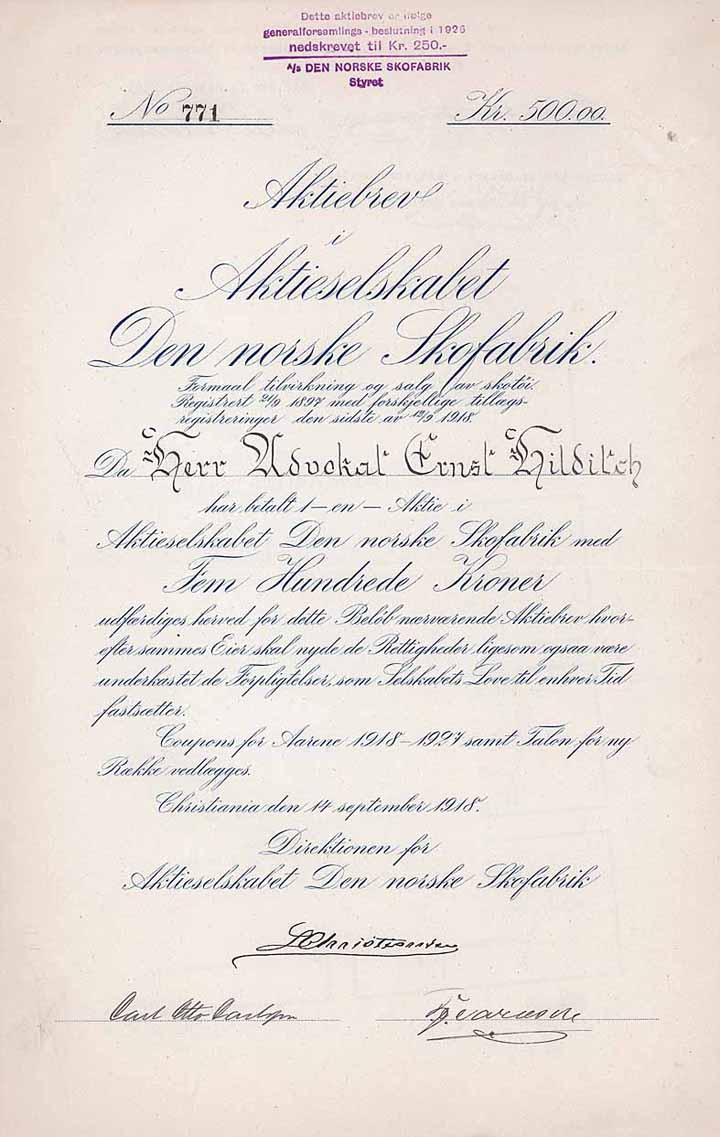 Dette aktiebrev er ifølge
generalforsamlings-beslutning i 1926
nedskrevet til Kr. 250.-
A/S DEN NORSKE SKOFABRIK
Styret
No 771
Kr. 500.00.
Aktiebrev
i
Aktieselskabet
Den norske Skofabrik.
Formaal tilvirkning og salg av skotöi.
Registrert 21/9 1897 med forskjellige tillægs-
registreringer den sidste av 12/9 1918.
Da Herr Advokat Ernst Hilditch
har betalt 1 – en – Aktie i
Aktieselskabet Den norske Skofabrik med
Fem Hundrede Kroner
udfærdiges herved for dette Belöb nærværende Aktiebrev, hvor-
efter sammes Eier skal nyde de Rettigheder, ligesom ogsaa være
underkastet de Forpligtelser, som Selskabets Love til enhver Tid
fastsætter.
Coupons for Aarene 1918–1927 samt Talon for ny
Række vedlægges.
Christiania den 14 september 1918.
Direktionen for
Aktieselskabet Den norske Skofabrik
Carl Otto